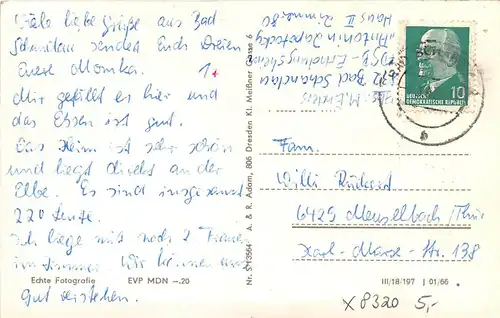 Viele liebe Grüße aus Bad
Schandau sendet Euch Dreien
Eure Monika.
Mir gefällt es hier und
das Essen ist gut.
Das Heim ist sehr schön
und liegt direkt an der
Elbe. Es sind insgesamt
220 Leute.
Ich liege mit noch 2 Frauen
im Zimmer. Wir können uns
gut verstehen.
Echte Fotografie EVP MDN —.20
Nr. S 1/3564 A. & R. Adam, 806 Dresden Kl. Meißner Gasse 6
Abs. M.
Bad Schandau
FDGB-Erholungsheim
"Antonin Zapotocky"
Haus II Zimmer 80
10
DEUTSCHE
DEMOKRATISCHE REPUBLIK
b
Fam.
Willi Rückert
6425 Meuselbach/Thür
Karl-Marx-Str. 138
III/18/197 J 01/66
X 8320 5,-